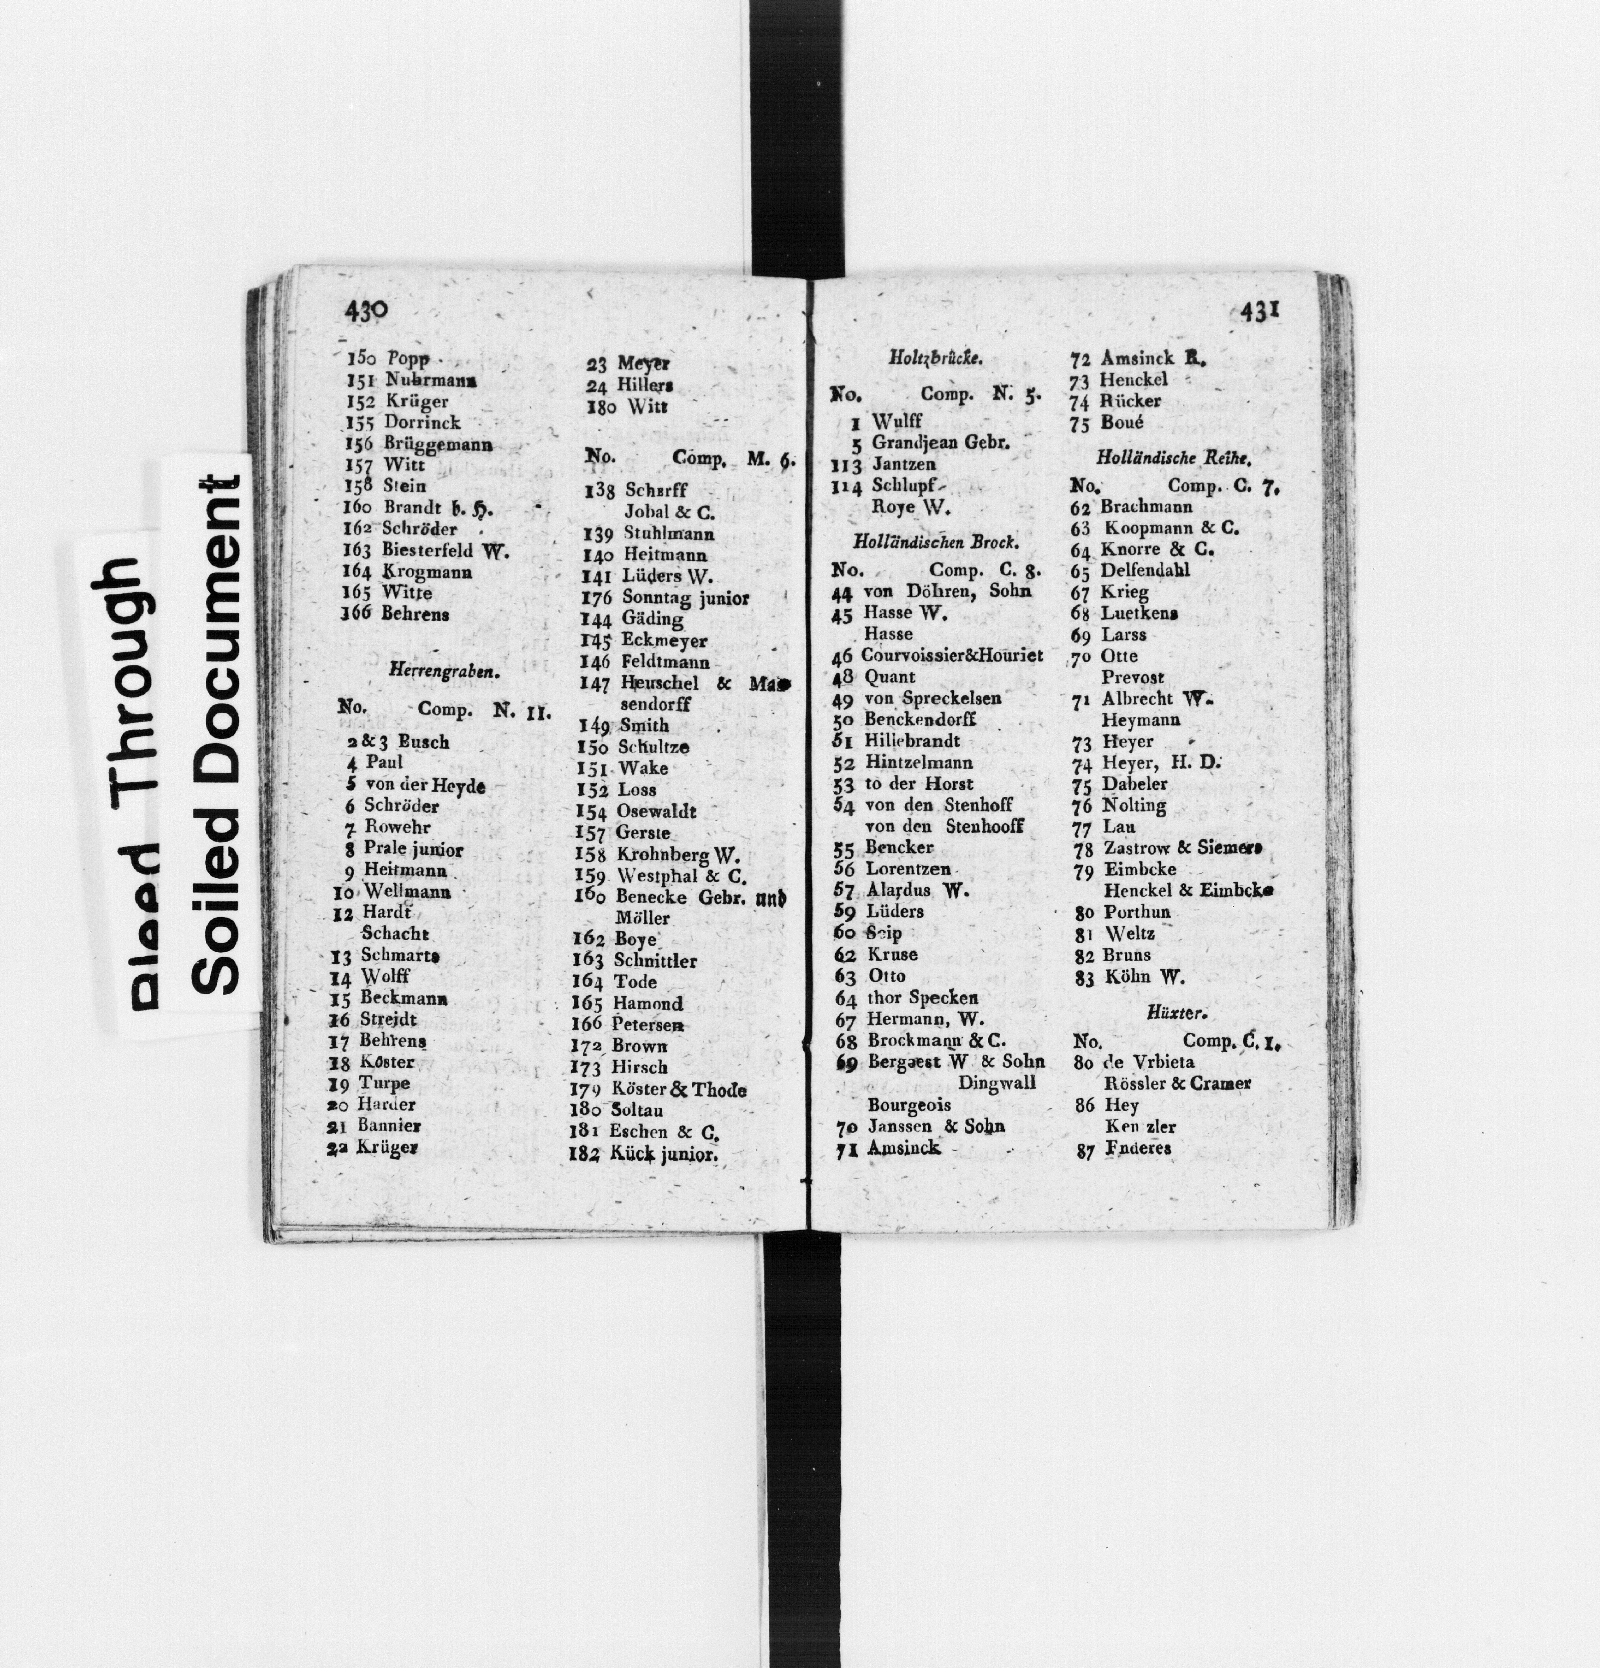 Bleed Through
Soiled Document
430
150 Popp
151 Nuhrmann
152 Krüger
155 Dorrinck
156 Brüggemann
157 Witt
158 Stein
160 Brandt b. H.
162 Schröder
163 Biesterfeld W.
164 Krogmann
165 Witte
166 Behrens
Herrengraben.
No. Comp. N. 11.
2 & 3 Busch
4 Paul
5 von der Heyde
6 Schröder
7 Rowehr
8 Prale junior
9 Heitmann
10 Wellmann
12 Hardt
Schacht
13 Schmarts
14 Wolff
15 Beckmann
16 Streidt
17 Behrens
18 Köster
19 Turpe
20 Harder
21 Bannier
22 Krüger
23 Meyer
24 Hillers
180 Witt
No. Comp. M. 6.
138 Scharff
Jobal & C.
139 Stuhlmann
140 Heitmann
141 Lüders W.
176 Sonntag junior
144 Gäding
145 Eckmeyer
146 Feldtmann
147 Heuschel & Mas
sendorff
149 Smith
150 Schultze
151 Wake
152 Loss
154 Osewaldt
157 Gerste
158 Krohnberg W.
159 Westphal & C.
160 Benecke Gebr. und
Möller
162 Boye
163 Schnittler
164 Tode
165 Hamond
166 Petersen
172 Brown
173 Hirsch
179 Köster & Thode
180 Soltau
181 Eschen & C.
182 Kück junior.
431
Holtzbrücke.
No. Comp. N. 5.
1 Wulff
5 Grandjean Gebr.
113 Jantzen
114 Schlupf
Roye W.
Holländischen Brock.
No. Comp. C. 8.
44 von Döhren, Sohn
45 Hasse W.
Hasse
46 Courvoissier&Houriet
48 Quant
49 von Spreckelsen
50 Benckendorff
51 Hillebrandt
52 Hintzelmann
53 to der Horst
54 von den Stenhoff
von den Stenhooff
55 Bencker
56 Lorentzen
57 Alardus W.
59 Lüders
60 Seip
62 Kruse
63 Otto
64 thor Specken
67 Hermann, W.
68 Brockmann & C.
69 Bergaest W & Sohn
Dingwall
Bourgeois
70 Janssen & Sohn
71 Amsinck
72 Amsinck R.
73 Henckel
74 Rücker
75 Boué
Holländische Reihe.
No. Comp. C. 7.
62 Brachmann
63 Koopmann & C.
64 Knorre & C.
65 Delfendahl
67 Krieg
68 Luetkens
69 Larss
70 Otte
Prevost
71 Albrecht W.
Heymann
73 Heyer
74 Heyer, H. D.
75 Dabeler
76 Nolting
77 Lau
78 Zastrow & Siemers
79 Eimbcke
Henckel & Eimbcke
80 Porthun
81 Weltz
82 Bruns
83 Köhn W.
Hüxter.
No. Comp. C. 1.
80 de Vrbieta
Rössler & Cramer
86 Hey
Kenzler
87 Enderes